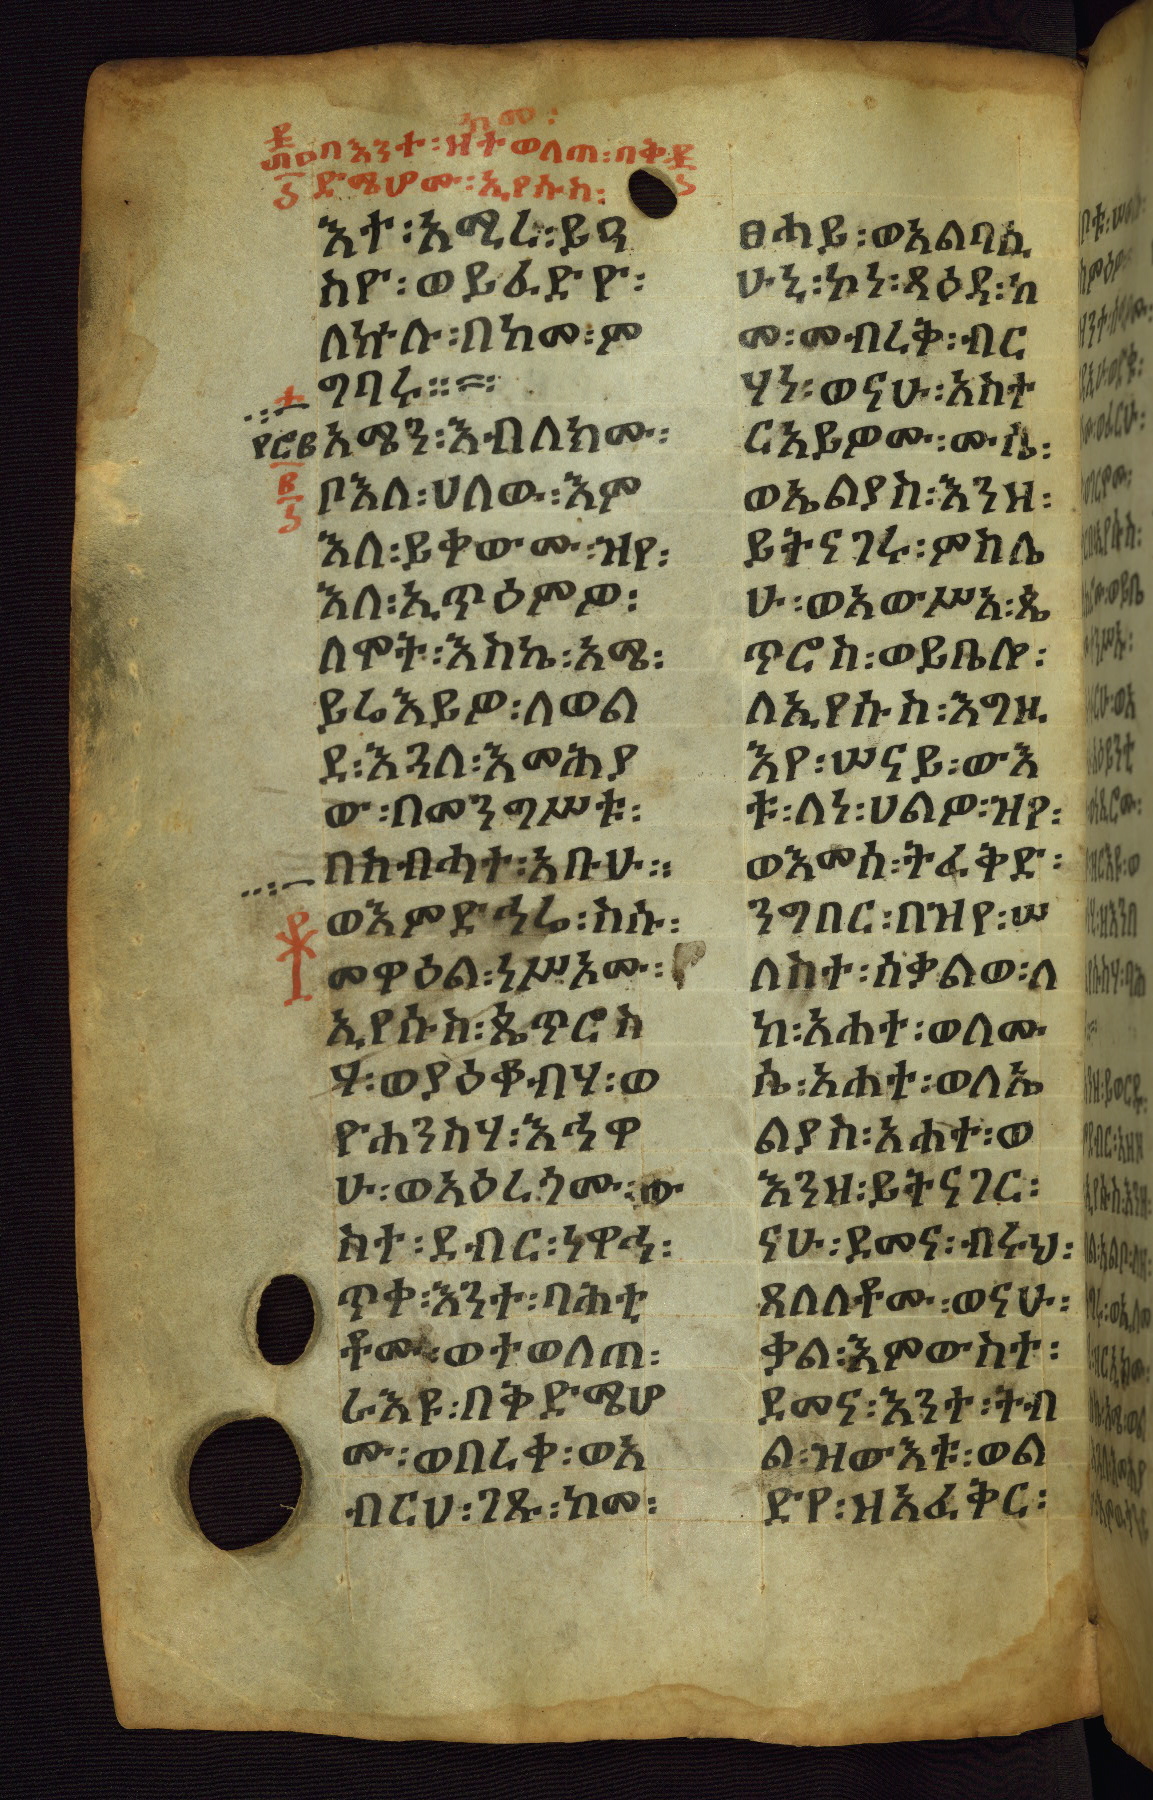 ከመ፡
በእንተ፡ዘተወለጠ፡በቅ
ድሜሆሙ፡ኢየሱስ፡
እተ፡አሚረ፡ይዳ
ስዮ፡ወይፈድዮ፡
ለኵሉ፡በከመ፡ም
ግባሩ።
አሜን፡እብለክሙ፡
ቦእለ፡ሀለው፡እም
እለ፡ይቀውሙ፡ዝየ፡
እለ፡ኢጥዕምዎ፡
ለሞት፡እስከ፡አሜ፡
ይሬእይዎ፡ለወል
ደ፡እጓለ፡እመሕያ
ው፡በመንግሥቱ፡
በስብሓተ፡አቡሁ።
ወእምድኅሬ፡ስሱ፡
መዋዕል፡ነሥአሙ፡
ኢየሱስ፡ጴጥሮስ
ሃ፡ወያዕቆብሃ፡ወ
ዮሐንስሃ፡እኅዋ
ሁ፡ወአዕረጎሙ፡ው
ስተ፡ደብር፡ነዋኅ፡
ጥቀ፡እንተ፡ባሕቲ
ቶሙ፡ወተወለጠ፡
ራእዩ፡በቅድሜሆ
ሙ፡ወበረቀ፡ወአ
ብርሀ፡ገጹ፡ከመ፡
ፀሓይ፡ወአልባሲ
ሁኒ፡ኮነ፡ጸዕዳ፡ከ
መ፡መብረቅ፡ብር
ሃነ፡ወናሁ፡አስተ
ርእይዎሙ፡ሙሴ፡
ወኤልያስ፡እንዘ፡
ይትናገሩ፡ምስሌ
ሁ፡ወአውሥአ፡ጴ
ጥሮስ፡ወይቤሎ፡
ለኢየሱስ፡እግዚ
እየ፡ሠናይ፡ውእ
ቱ፡ለነ፡ሀልዎ፡ዝየ፡
ወእመሰ፡ትፈቅድ፡
ንግበር፡በዝየ፡ሠ
ለስተ፡ሰቃልወ፡ለ
ከ፡አሐተ፡ወለሙ
ሴ፡አሐተ፡ወለኤ
ልያስ፡አሐተ፡ወ
እንዘ፡ይትናገር፡
ናሁ፡ደመና፡ብሩህ፡
ጸለለቶሙ፡ወናሁ፡
ቃል፡እምውስተ፡
ደመና፡እንተ፡ትብ
ል፡ዝውእቱ፡ወል
ድየ፡ዝአፈቅር፡